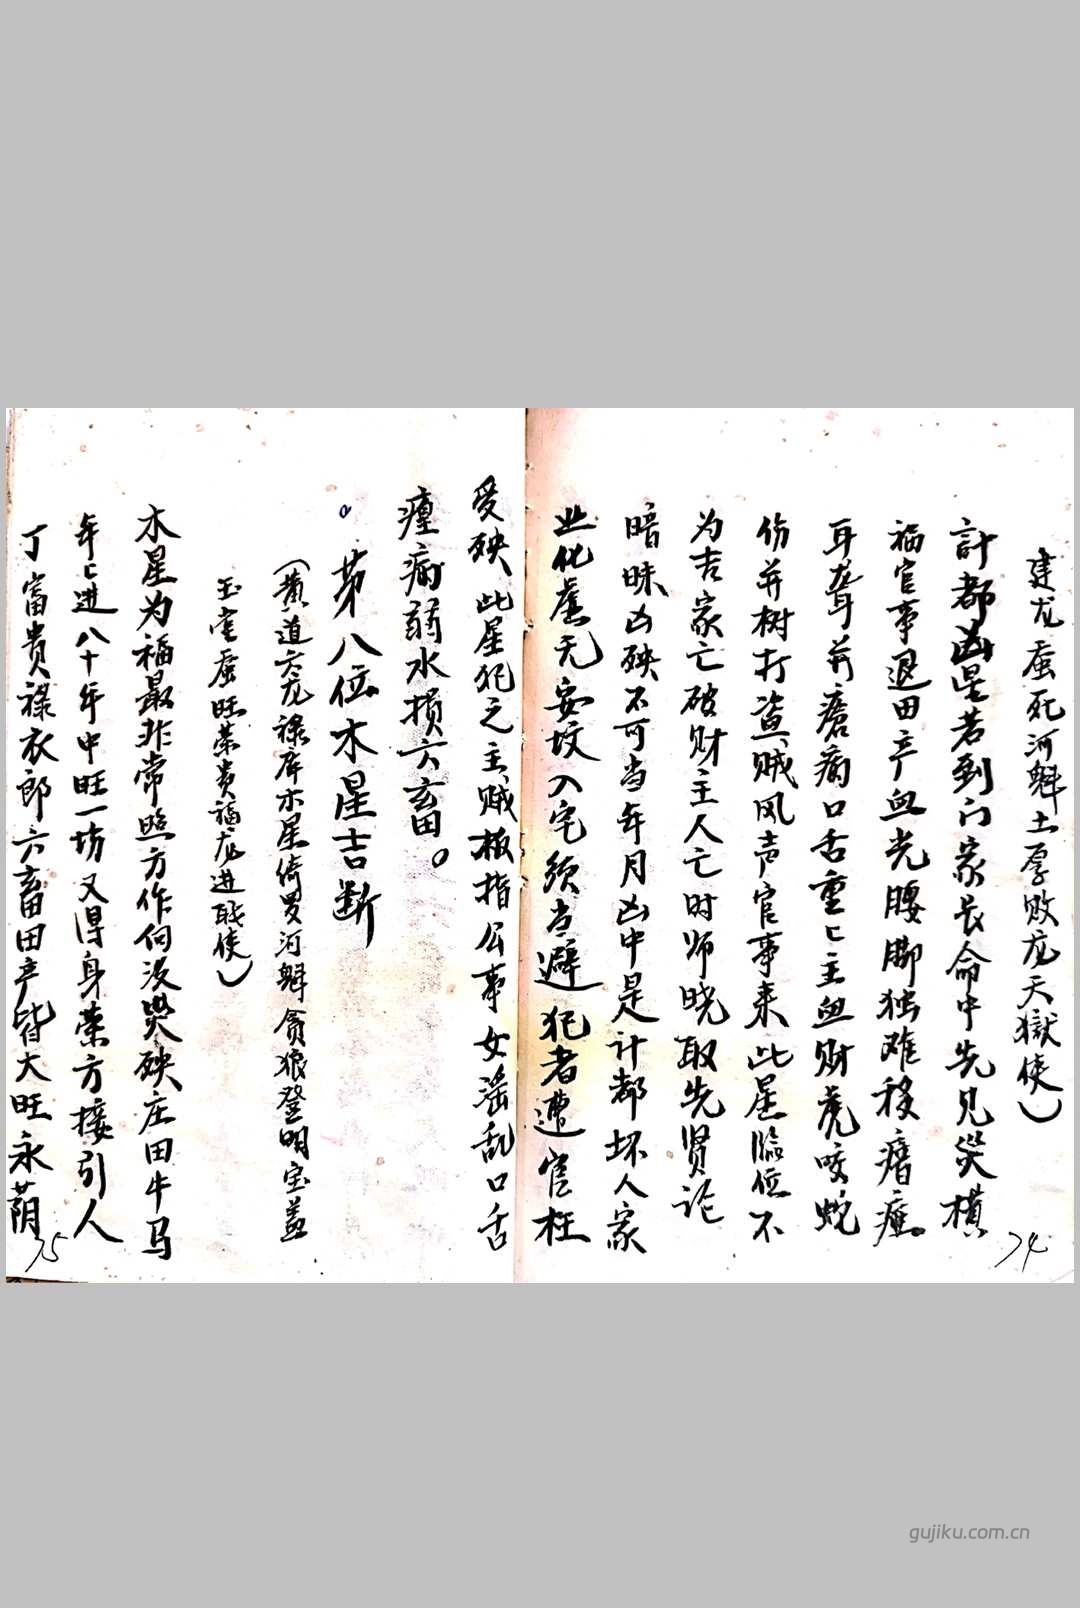 建龙蚕死河魁土厚败龙天獄使）
計都凶星若到门家長命中先見災横
禍官事退田产血光腰脚独难移瘖症
耳聋并瘡病口舌重㇈主血财虎咬蛇
伤并树打盗贼风声官事来此星臨位不
为吉家亡破财主人亡时师晓取先贤论
暗昧凶殃不可当年月凶中是计都坏人家
业化虚无安坟入宅须当避犯者遭官枉
受殃此星犯之主贼板指公事女淫乱口舌
瘇病弱水损六畜。
第八位木星吉断
（黄道天龙禄库木星倚罗河魁貪狼登明宝盖
玉堂蚕旺荣贵福龙进職使）
木星为福最非常照方作向没災殃庄田牛马
年㇈进八十年中旺一坊又得身荣方接引人
丁富贵禄衣郎六畜田产皆大旺永荫
74
75
gujiku.com.cn